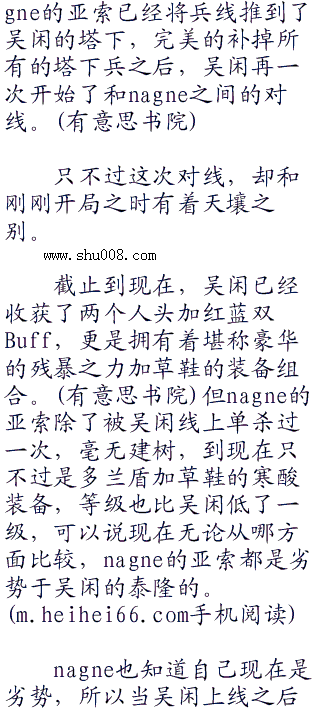 gne的亚索已经将兵线推到了
吴闲的塔下，完美的补掉所
有的塔下兵之后，吴闲再一
次开始了和nagne之间的对
线。(有意思书院)
只不过这次对线，却和
刚刚开局之时有着天壤之
别。
www.shu008.com
截止到现在，吴闲已经
收获了两个人头加红蓝双
Buff，更是拥有着堪称豪华
的残暴之力加草鞋的装备组
合。(有意思书院)但nagne的
亚索除了被吴闲线上单杀过
一次，毫无建树，到现在只
不过是多兰盾加草鞋的寒酸
装备，等级也比吴闲低了一
级，可以说现在无论从哪方
面比较，nagne的亚索都是劣
势于吴闲的泰隆的。
(m.heihei66.com手机阅读)
nagne也知道自己现在是
劣势，所以当吴闲上线之后